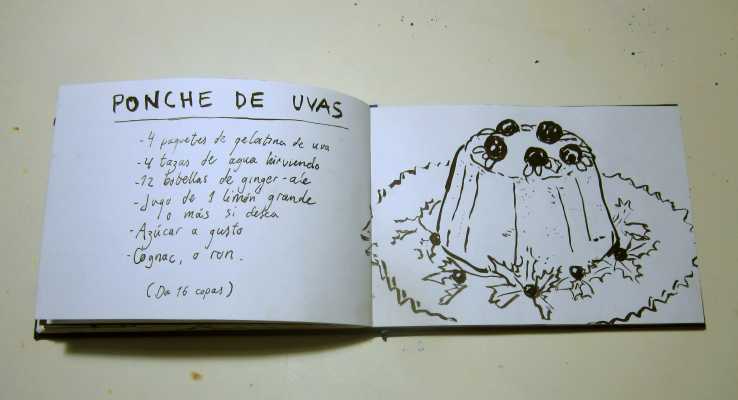 PONCHE DE UVAS
- 4 paquetes de gelatina de uva
- 4 tazas de agua hirviendo
- 12 botellas de ginger-ale
- Jugo de 1 limón grande
o más si desea
- Azúcar a gusto
- Cognac, o ron.
(Da 16 copas)